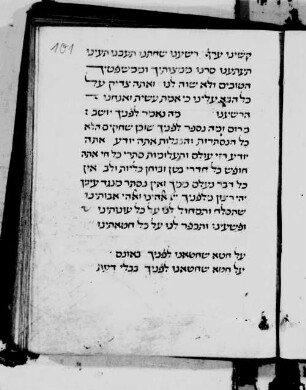 101
קשינו עורף רשענו שחתנו תעבנו תעינו
תעתענו סרנו ממצותיך וממשפטיך
הטובים ולא שוה לנו ואתה צדיק על
כל הבא עלינו כי אמת עשית ואנחנו
הרשענו מה נאמר לפניך יושב
מרום ומה נספר לפניך שוכן שחקים הלא
כל הנסתרות והנגלות אתה יודע אתה
יודע רזי עולם ותעלומות סתרי כל חי אתה
חופש כל חדרי בטן ובוחן כליות ולב אין
כל דבר נעלם ממך ואין נסתר מנגד עיניך
יהי רצון מלפניך אלהינו ואלהי אבותינו
שתסלח ותמחול לנו על כל עונותינו
ופשעינו ותכפר לנו על כל חטאתינו
על חטא שחטאנו לפניך באונס
על חטא שחטאנו לפניך בבלי דעת